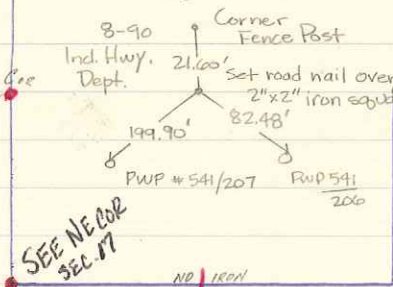 8-90
Ind. Hwy.
Dept.
Corner
Fence Post
21.60'
Set road nail over
2"x2" iron squa
199.90'
82.48'
PWP # 541/207
PWP 541
206
Cor
SEE NE COR
SEC. 17
NO IRON